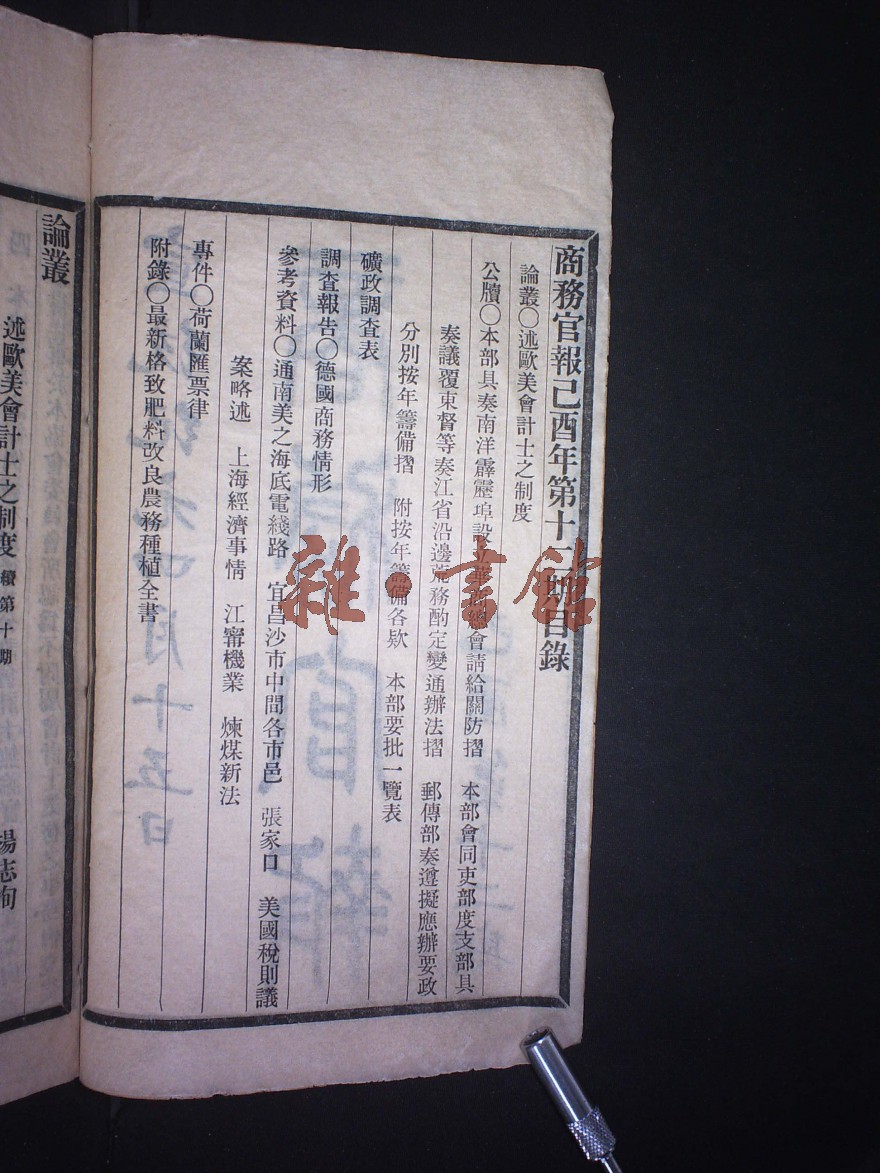 商務官報己酉年第十二期目錄
論叢○述歐美會計士之制度
公牘○本部具奏南洋霹靂埠設立華商總會請給關防摺　本部會同吏部度支部具
奏議覆東督等奏江省沿邊荒務酌定變通辦法摺　郵傳部奏遵擬應辦要政
分別按年籌備摺　附按年籌備各欵　本部要批一覽表
礦政調查表
調查報告○德國商務情形
參考資料○通南美之海底電綫路　宜昌沙市中間各市邑　張家口　美國稅則議
案略述　上海經濟事情　江甯機業　煉煤新法
專件○荷蘭匯票律
附錄○最新格致肥料改良農務種植全書
論叢
述歐美會計士之制度 續第十期
楊志洵
雜·書館